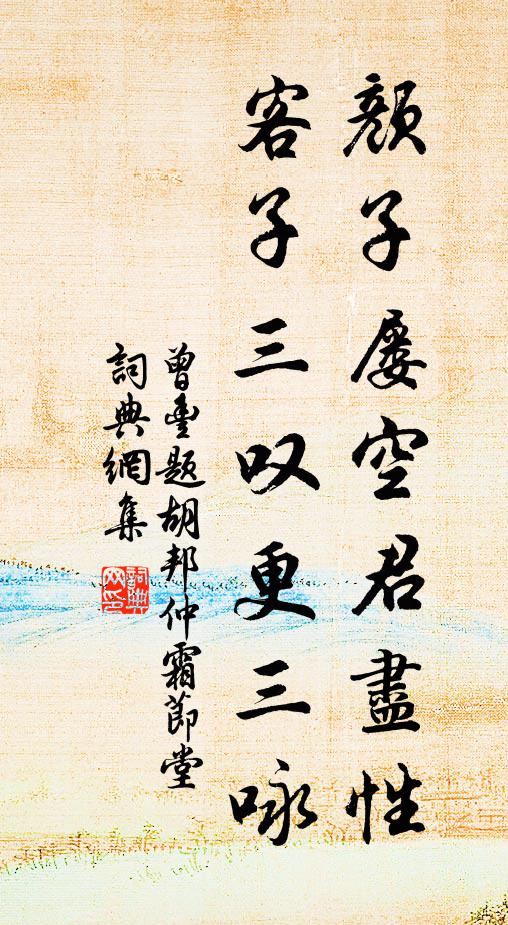 顏子屡空君盡性
客子三叹更三咏
曾豊题胡邦仲霜節堂
詞典網集